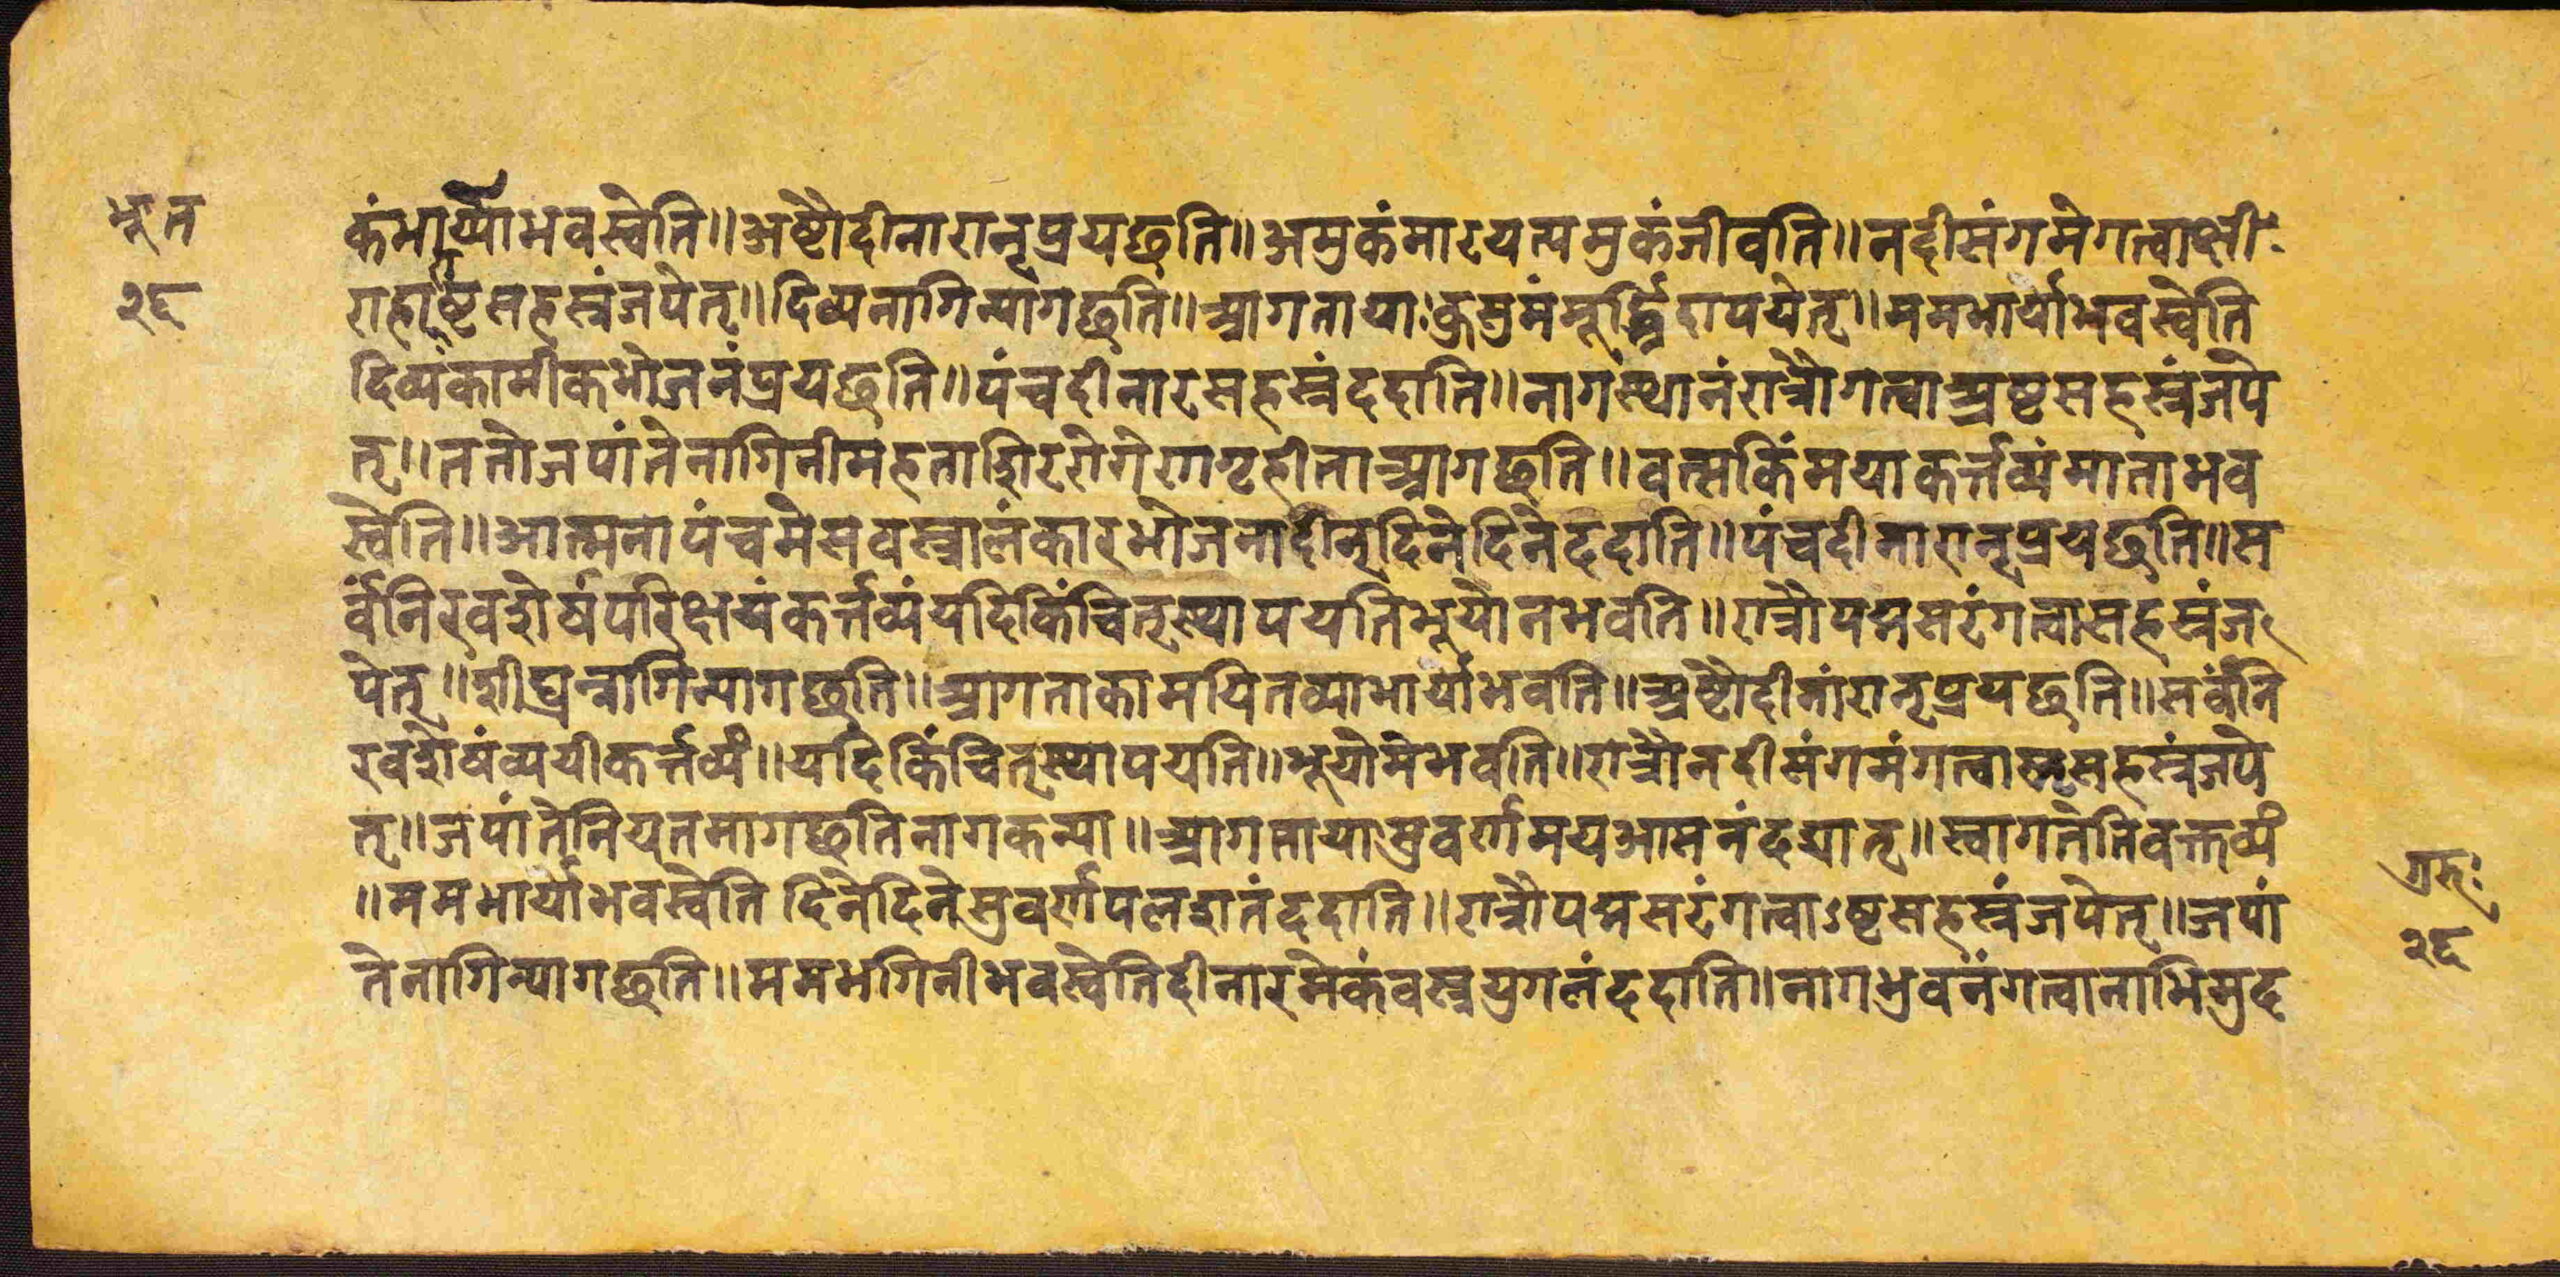 भूत
२६
कंभार्य्याभवस्वेति॥अष्टौदीनारान्प्रयछति॥अमुकंमारयत्यमुकंजीवति॥नदीसंगमेगत्वाक्षी
राहार्ष्टसहस्रंजपेत्॥दिव्यनागिन्यागछति॥आगतायाःकुसुमंमूर्द्ध्निदापयेत्॥ममभार्याभवस्वेति
दिव्यंकामीकभोजनंप्रयछति॥पंचदीनारसहस्रंददाति॥नागस्थानंरात्रौगत्वाअष्टसहस्रंजपे
त्॥ततोजपांतेनागिनीमहताशिररोगेणगृहीताआगछति॥वत्सकिंमयाकर्त्तव्यंमाताभव
स्वेति॥आत्मनापंचमेसवस्त्रालंकारभोजनादीन्दिनेदिनेददाति॥पंचदीनारान्प्रयछति॥स
र्वंनिरवशेषंपरिक्षयंकर्त्तव्यंयदिकिंचित्स्थापयतिभूयोनभवति॥रात्रौपद्मसरंगत्वासहस्रंज
पेत्॥शीघ्रन्नागिन्यागछति॥आगताकामयितव्याभार्याभवति॥अष्टौदीनांरान्प्रयछति॥सर्वंनि
रवशेषंव्ययीकर्त्तव्यं॥यदिकिंचित्स्थापयति॥भूयोमेभवति॥रात्रौनदीसंगमंगत्वाष्टसहस्रंजपे
त्॥जपांतेनियतमागछतिनागकन्या॥आगतायासुवर्णमयआसनंदद्यात्॥स्वागतंतिवक्तव्यं
॥ममभार्याभवस्वेति दिनेदिनेसुवर्णपलशतंददाति॥रात्रौपद्मसरंगत्वाऽष्टसहस्रंजपेत्॥जपां
तेनागिन्यागछति॥ममभगिनीभवस्वेतिदीनारमेकंवस्त्रयुगलंददाति॥नागभुवनंगत्वानाभिमुद
२६